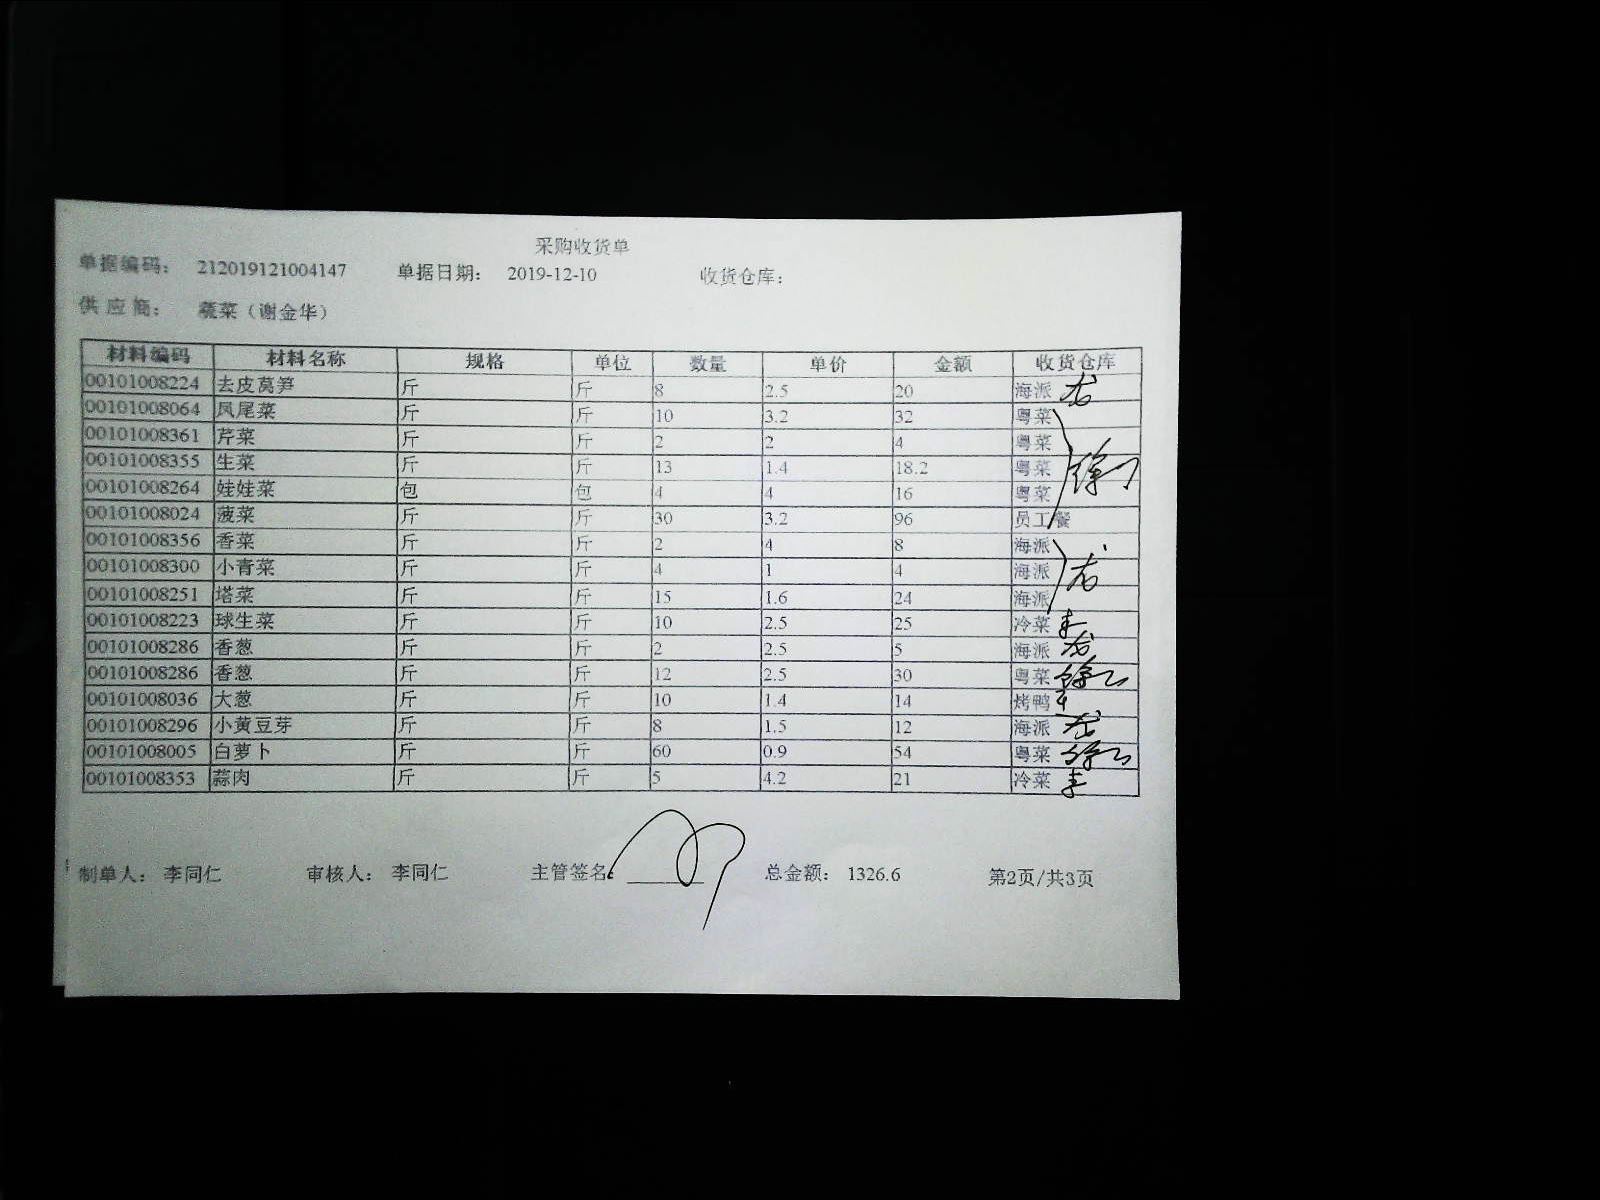 采购收货单
单据编码： 212019121004147 单据日期： 2019-12-10 收货仓库：
供应商： 蔬菜（谢金华）
材料编码 材料名称 规格 单位 数量 单价 金额 收货仓库
00101008224 去皮莴笋 斤 斤 8 2.5 20 海派
00101008064 凤尾菜 斤 斤 10 3.2 32 粤菜
00101008361 芹菜 斤 斤 2 2 4 粤菜
00101008355 生菜 斤 斤 13 1.4 18.2 粤菜
00101008264 娃娃菜 包 包 4 4 16 粤菜
00101008024 菠菜 斤 斤 30 3.2 96 员工餐
00101008356 香菜 斤 斤 2 4 8 海派
00101008300 小青菜 斤 斤 4 1 4 海派
00101008251 塔菜 斤 斤 15 1.6 24 海派
00101008223 球生菜 斤 斤 10 2.5 25 冷菜
00101008286 香葱 斤 斤 2 2.5 5 海派
00101008286 香葱 斤 斤 12 2.5 30 粤菜
00101008036 大葱 斤 斤 10 1.4 14 烤鸭
00101008296 小黄豆芽 斤 斤 8 1.5 12 海派
00101008005 白萝卜 斤 斤 60 0.9 54 粤菜
00101008353 蒜肉 斤 斤 5 4.2 21 冷菜
制单人： 李同仁 审核人： 李同仁 主管签名: 总金额： 1326.6 第2页/共3页